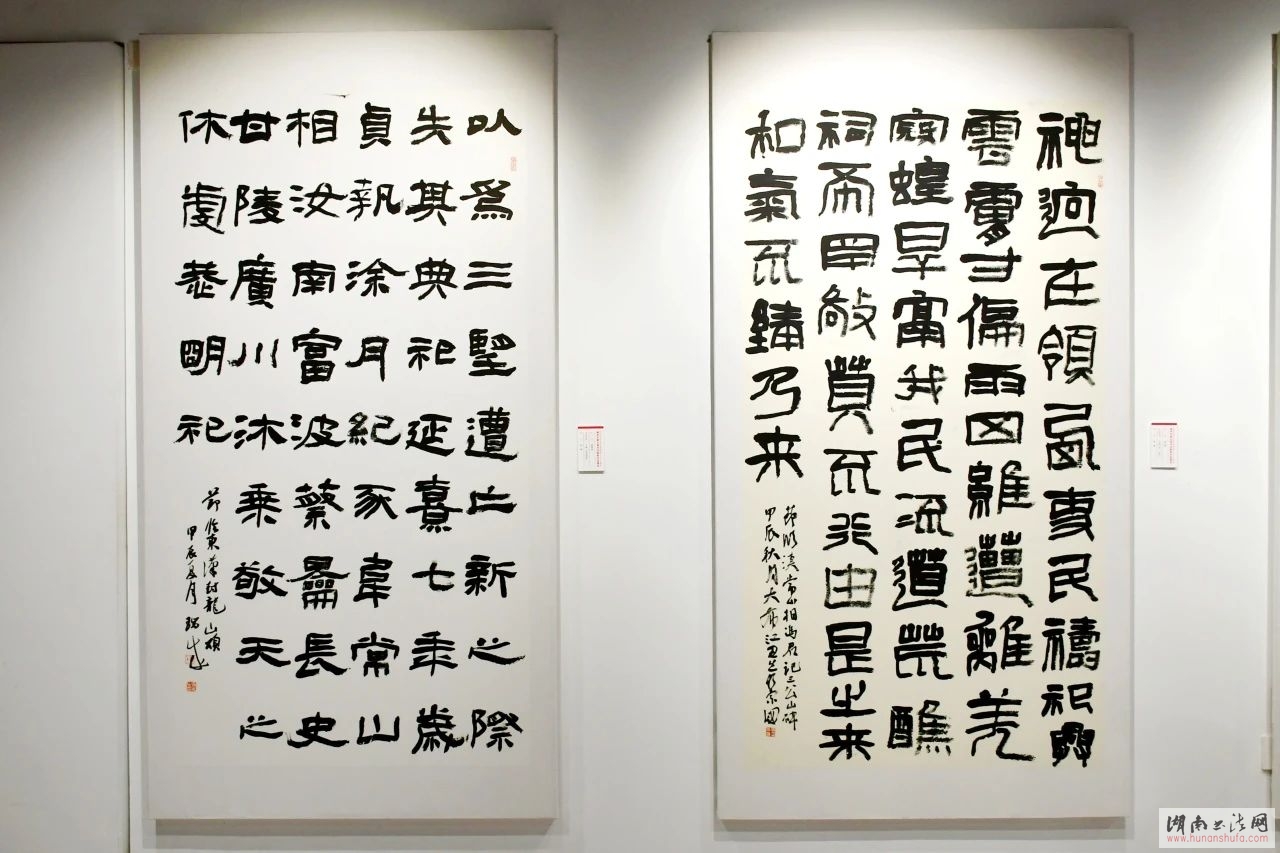 以為三聖遭亡新之際
失其典祀延熹七年歲
貞執涂月紀豕韋常山
相汝南富波蔡䵣長史
甘陵廣川沐乘敬天之
休虔恭明祀
節臨東漢封龍山頌
甲辰夏月
神迥在領西吏民禱祀興
雲膚寸偏雨四維遭離羌
寇蝗旱鬲我民流道荒醮
祠希罕敬奠不行由是之来
和氣不臻乃来
節臨漢常山相馮君祀三公山碑
甲辰秋月
湖南书法网
www.hunanshufa.com